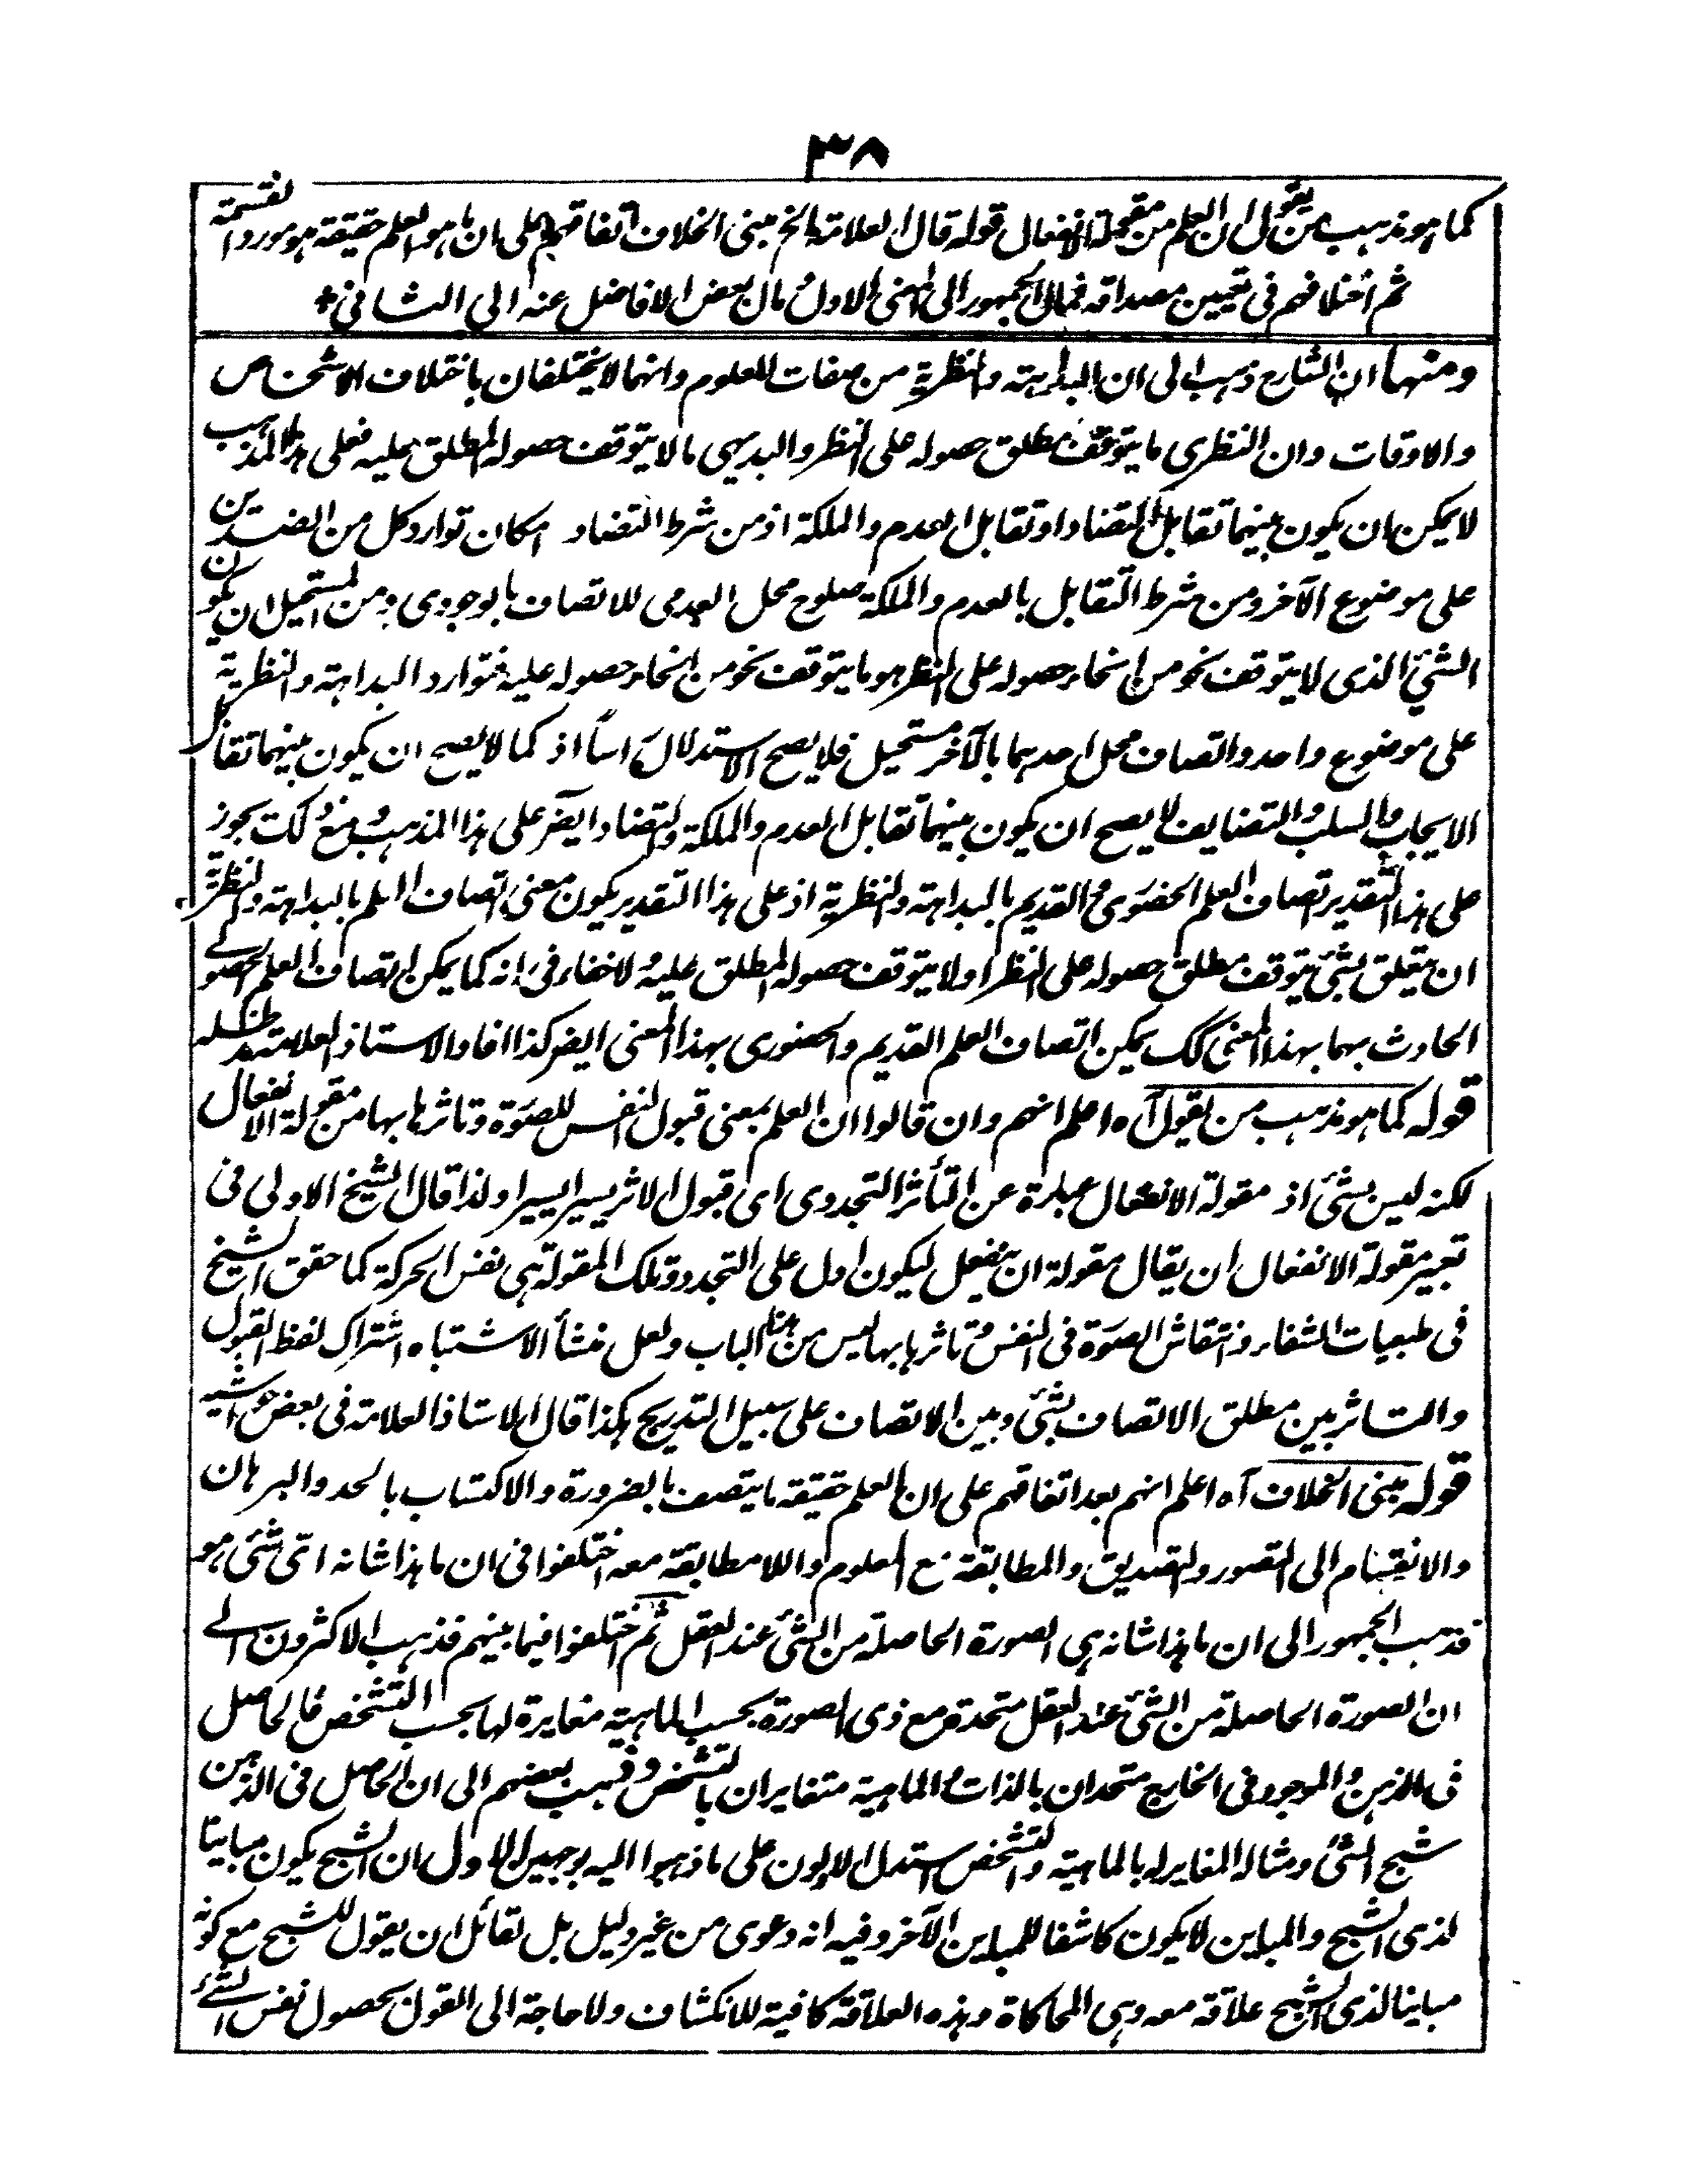 ٣٨
كما هو مذهب من يقول ان العلم من مقولة الانفعال قوله قال العلامة الخ مبنى الخلاف اتفاقهم على ان ما هو العلم حقيقة هو مورد القسمة
ثم اختلافهم فى تعيين مصداقه فمال الجمهور الى المعنى الاول و مال بعض الافاضل عنه الى الثانى +
ومنها ان الشارح ذهب الى ان البداهة والنظرية من صفات المعلوم وانهما لا يختلفان باختلاف الاشخاص
والاوقات وان النظرى ما يتوقف مطلق حصوله على النظر والبديهى ما لا يتوقف حصوله المطلق عليه فعلى هذا المذهب
لا يمكن ان يكون بينهما تقابل التضاد او تقابل العدم والملكة اذ من شرط التضاد امكان توارد كل من الضدين
على موضوع الآخر ومن شرط التقابل بالعدم والملكة صلوح محل العدمى للاتصاف بالوجودى ومن المستحيل ان يكون
الشئ الذى لا يتوقف نحو من انحاء حصوله على النظر هو ما يتوقف نحو من انحاء حصوله عليه فتوارد البداهة والنظرية
على موضوع واحد واتصاف محل احدهما بالآخر مستحيل فلا يصح الاستدلال راسا اذ كما لا يصح ان يكون بينهما تقابل
الايجاب والسلب والتضايف لا يصح ان يكون بينهما تقابل العدم والملكة والتضاد ايضر على هذا المذهب و مع ذلك يجوز
على هذا التقدير اتصاف العلم الحضورى والقديم بالبداهة والنظرية اذ على هذا التقدير يكون معنى اتصاف العلم بالبداهة والنظرية
ان يتعلق بشئ يتوقف مطلق حصوله على النظر او لا يتوقف حصوله المطلق عليه ولا خفاء فى انه كما يمكن اتصاف العلم الحصولى
الحادث بهما بهذا المعنى كك يمكن اتصاف العلم القديم والحضورى بهذا المعنى ايضر كذا افاد الاستاذ العلامة مد ظله
قوله كما هو مذهب من يقول آه اعلم انهم وان قالوا ان العلم بمعنى قبول النفس للصورة وتاثرها بها من مقولة الانفعال
لكنه ليس بشئ اذ مقولة الانفعال عبارة عن التأثر التجددى اى قبول الاثر يسيرا يسيرا ولذا قال الشيخ الاولى فى
تعبير مقولة الانفعال ان يقال مقولة ان ينفعل ليكون ادل على التجدد وتلك المقولة هى نفس الحركة كما حقق الشيخ
فى طبعيات الشفاء وانتقاش الصورة فى النفس و تاثرها بها ليس من هذا الباب ولعل منشأ الاشتباه اشتراك لفظ القبول
والتاثر بين مطلق الاتصاف بشئ وبين الاتصاف على سبيل التدريج هكذا قال الاستاذ العلامة فى بعض حواشيه
قوله مبنى الخلاف آه اعلم انهم بعد اتفاقهم على ان العلم حقيقة ما يتصف بالضرورة والاكتساب بالحد والبرهان
والانقسام الى التصور والتصديق والمطابقة مع المعلوم واللامطابقة معه اختلفوا فى ان ما هذا شانه اى شئ هو
فذهب الجمهور الى ان ما هذا شانه هى الصورة الحاصلة من الشئ عند العقل ثم اختلفوا فيما بينهم فذهب الاكثرون الى
ان الصورة الحاصلة من الشئ عند العقل متحدة مع ذى الصورة بحسب الماهية مغايرة لها بحسب التشخص فالحاصل
فى الذهن والموجود فى الخارج متحدان بالذات والماهية متغايران بالتشخص وذهب بعضهم الى ان الحاصل فى الذهن
شبح الشئ ومثاله المغاير له بالماهية والتشخص استدل الاولون على ما ذهبوا اليه بوجهين الاول ان الشبح يكون مباينا
لذى الشبح والمباين لا يكون كاشفا للمباين الآخر وفيه انه دعوى من غير دليل بل لقائل ان يقول للشبح مع كونه
مباينا لذى الشبح علاقة معه وهى المحاكاة وهذه العلاقة كافية للانكشاف ولا حاجة الى القول بحصول نفس الشئ